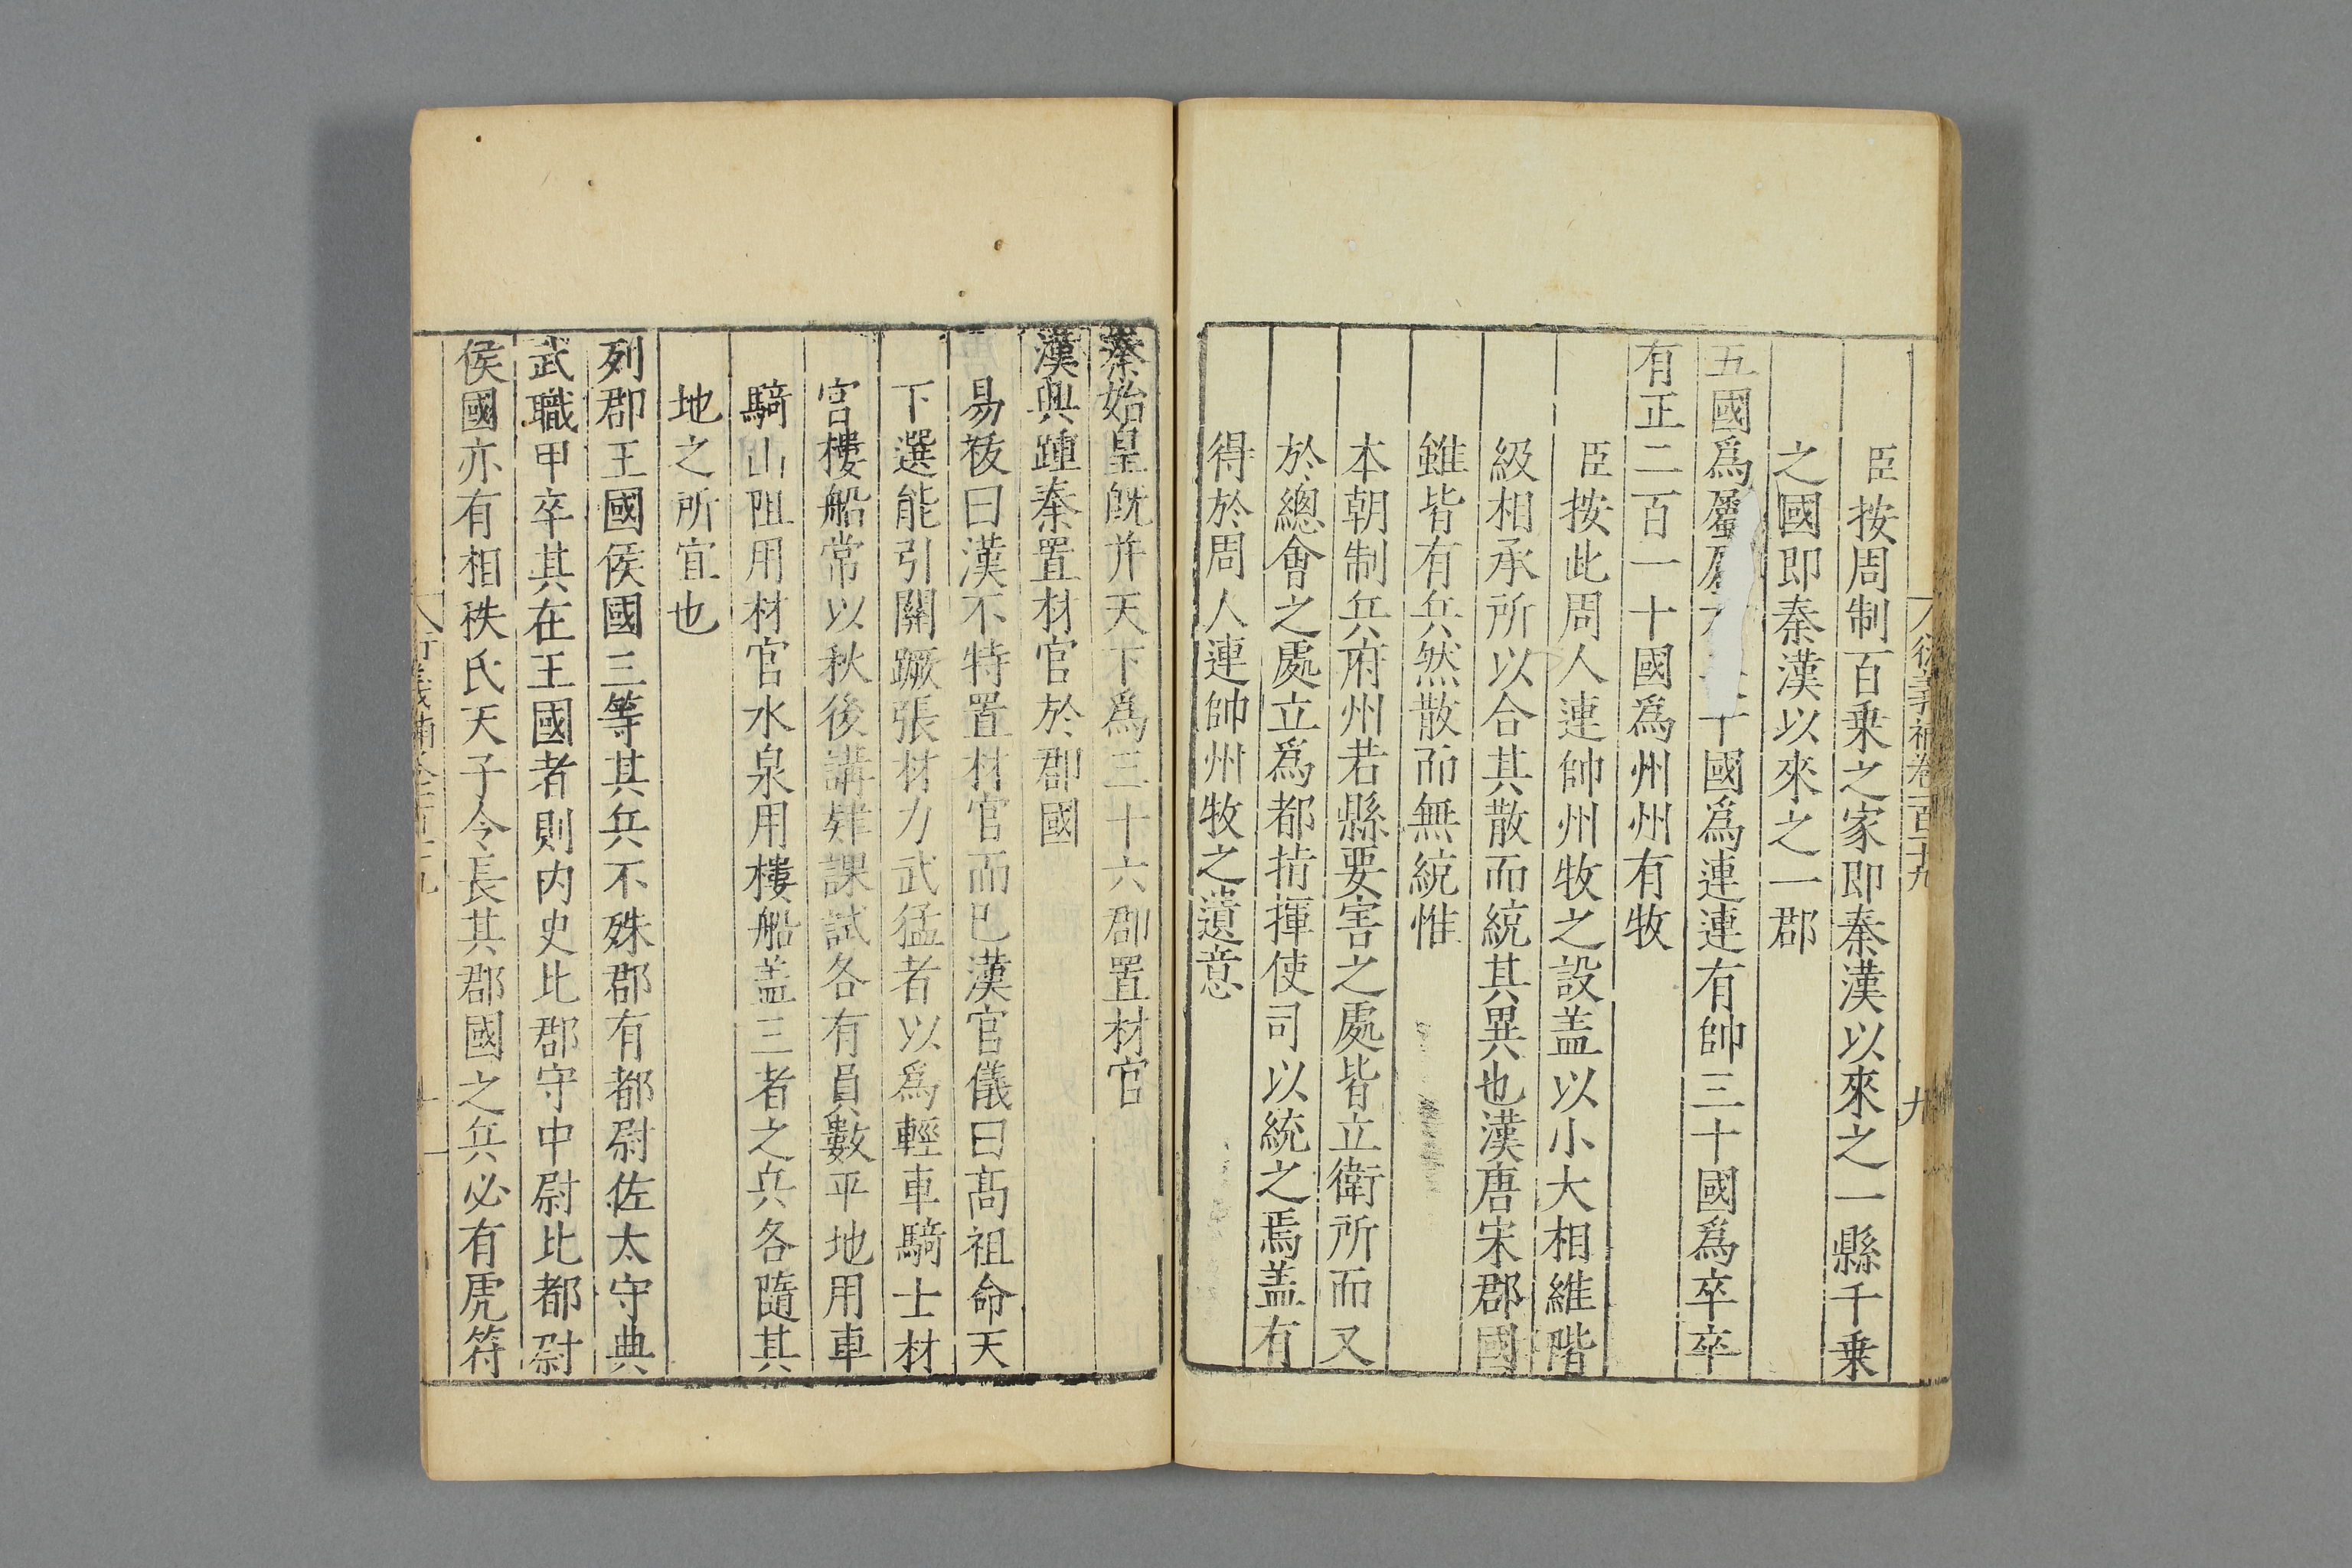 衍義補卷一百十九
九
臣按周制百乗之家即秦漢以來之一縣千乗
之國即秦漢以來之一郡
五國爲屬屬十國爲連連有帥三十國爲卒卒
有正二百一十國爲州州有牧
臣按此周人連帥州牧之設盖以小大相維階
級相承所以合其散而統其異也漢唐宋郡國
雖皆有兵然散而無統惟
本朝制兵府州若縣要害之處皆立衛所而又
於總會之處立爲都指揮使司以統之焉盖有
得於周人連帥州牧之遺意
秦始皇旣并天下爲三十六郡置材官
漢興踵秦置材官於郡國
易祓曰漢不特置材官而已漢官儀曰髙祖命天
下選能引關蹶張材力武猛者以爲輕車騎士材
官樓船常以秋後講肄課試各有員數平地用車
騎山阻用材官水泉用樓船盖三者之兵各隨其
地之所宜也
列郡王國侯國三等其兵不殊郡有都尉佐太守典
武職甲卒其在王國者則内史比郡守中尉比都尉
侯國亦有相秩氏天子令長其郡國之兵必有虎符